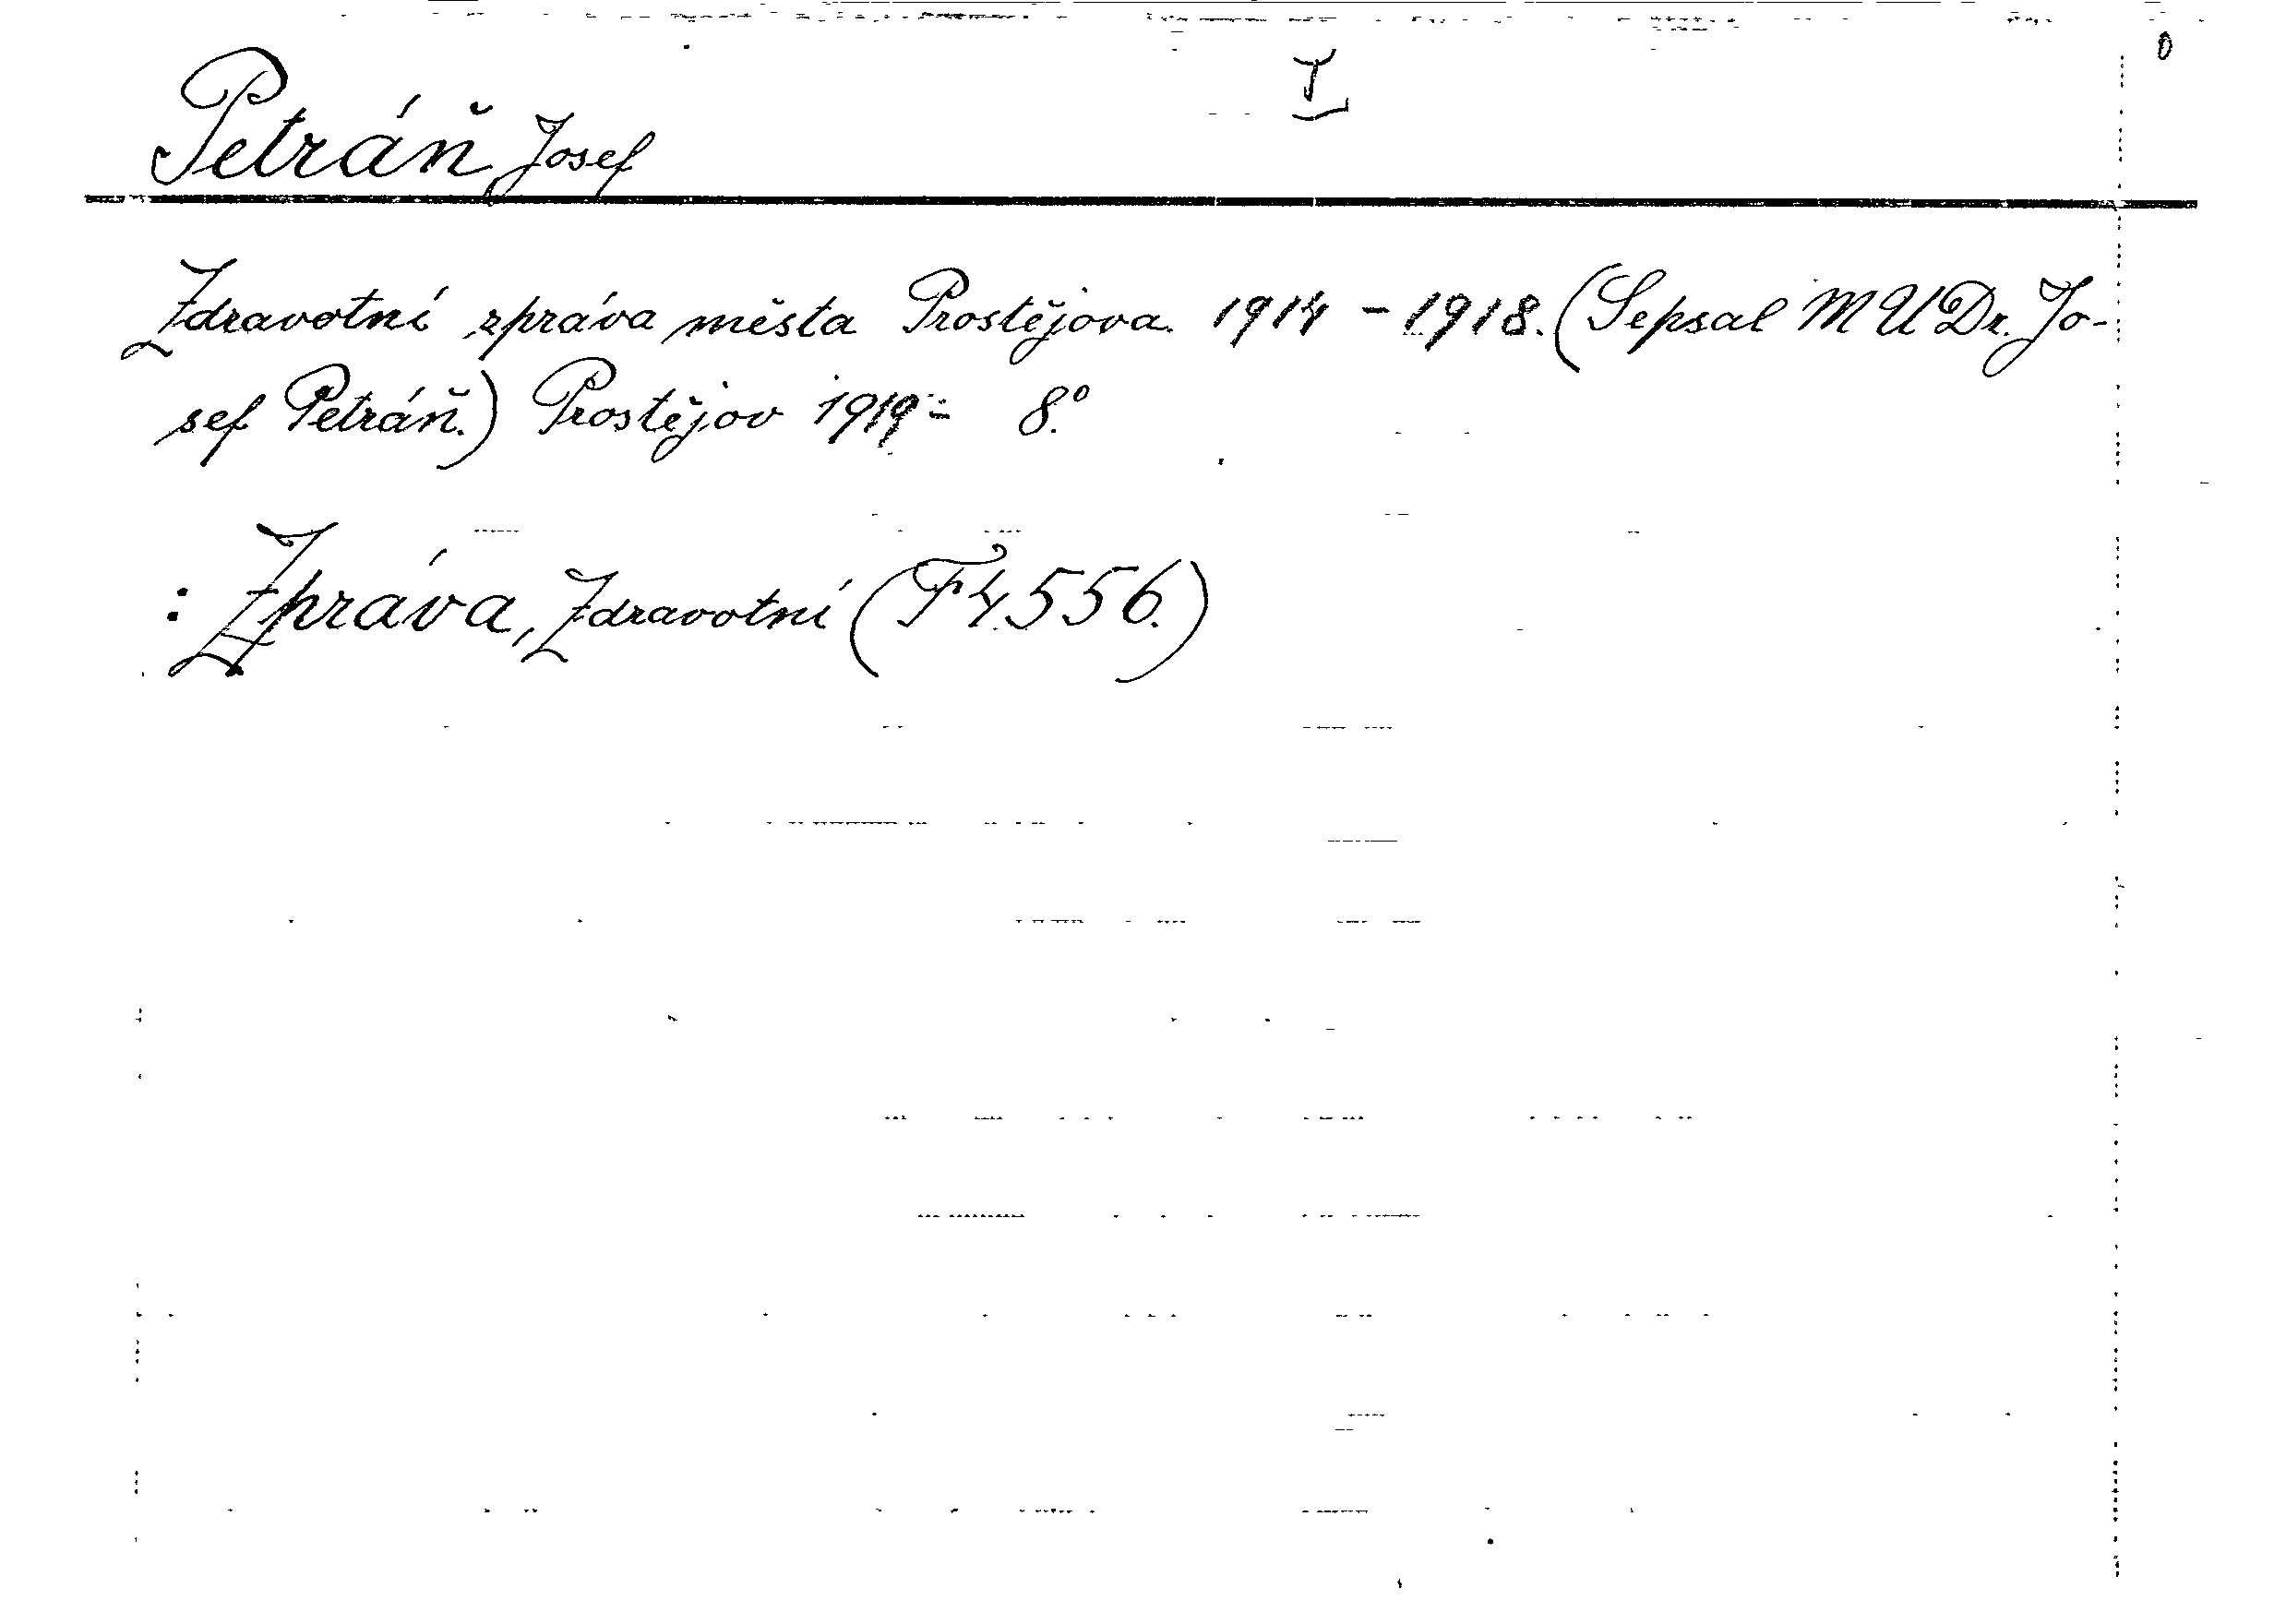 I
Petráň, Josef
Zdravotní zpráva města Prostějova. 1914 - 1918. (Sepsal MUDr. Jo-
sef Petráň.) Prostějov 1919 - 8.º
: Zpráva, Zdravotní (F 4.556.)